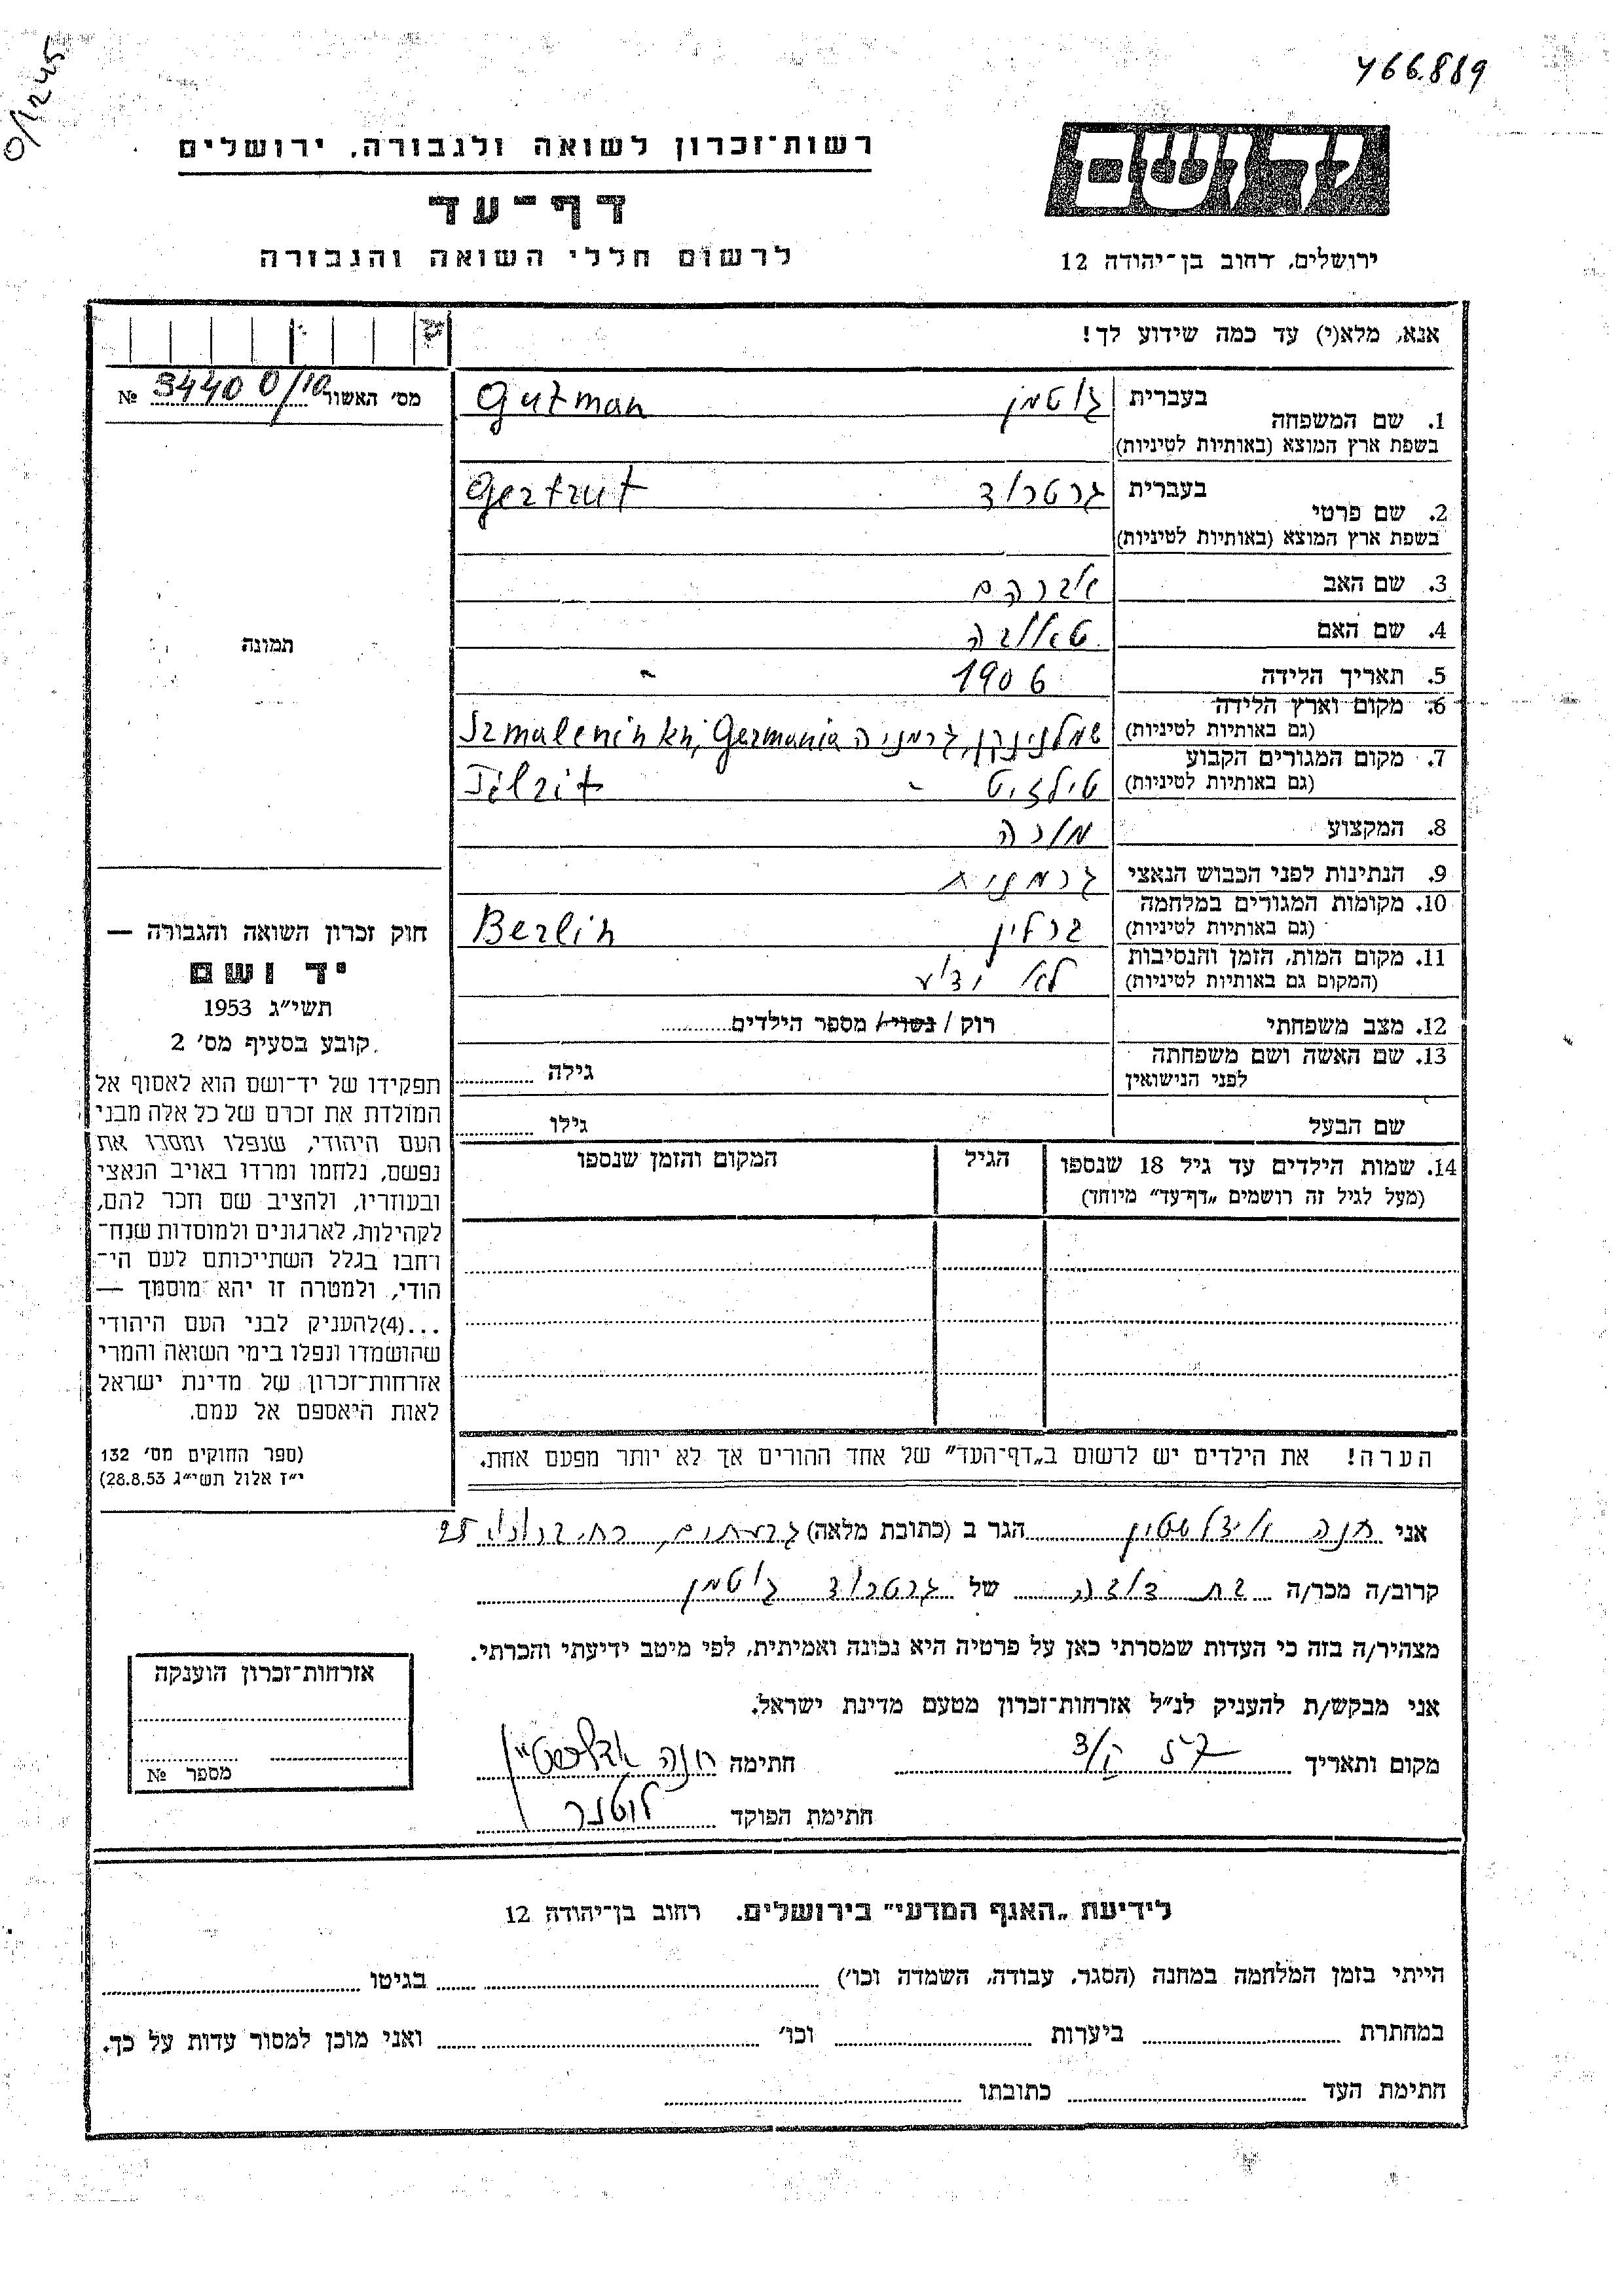 466.889
0/1245
יד ושם
רשות־זכרון לשואה ולגבורה, ירושלים
דף־עד
לרשום חללי השואה והגבורה
ירושלים, רחוב בן־יהודה 12
אנא, מלא(י) עד כמה שידוע לך!
מס׳ האשור 3440 0/10 №
1. שם המשפחה בעברית גוטמן Gutman
בשפת ארץ המוצא (באותיות לטיניות)
2. שם פרטי בעברית גרטרוד Gertrut
בשפת ארץ המוצא (באותיות לטיניות)
3. שם האב אברהם
4. שם האם
תמונה
5. תאריך הלידה 1906
6. מקום וארץ הלידה
(גם באותיות לטיניות) שמלנינקן, גרמניה Szmaleninkn, Germania
7. מקום המגורים הקבוע
(גם באותיות לטיניות) טילזיט - Tilzit
8. המקצוע מורה
9. הנתינות לפני הכבוש הנאצי גרמנית
10. מקומות המגורים במלחמה
(גם באותיות לטיניות) ברלין Berlin
11. מקום המות, הזמן והנסיבות
(המקום גם באותיות לטיניות) לא ידוע
12. מצב משפחתי רוק / נשוי / מספר הילדים
13. שם האשה ושם משפחתה
לפני הנישואין גילה
שם הבעל גילו
14. שמות הילדים עד גיל 18 שנספו הגיל המקום והזמן שנספו
(מעל לגיל זה רושמים „דף־עד” מיוחד)
הערה! את הילדים יש לרשום ב„דף־העד” של אחד ההורים אך לא יותר מפעם אחת.
חוק זכרון השואה והגבורה —
יד ושם
תשי״ג 1953
קובע בסעיף מס׳ 2
תפקידו של יד־ושם הוא לאסוף אל
המולדת את זכרם של כל אלה מבני
העם היהודי, שנפלו ומסרו את
נפשם, נלחמו ומרדו באויב הנאצי
ובעוזריו, ולהציב שם וזכר להם,
לקהילות, לארגונים ולמוסדות שנח־
רחבו בגלל השתייכותם לעם הי־
הודי, ולמטרה זו יהא מוסמך —
...(4)להעניק לבני העם היהודי
שהושמדו ונפלו בימי השואה והמרי
אזרחות־זכרון של מדינת ישראל
לאות היאספם אל עמם.
(ספר החוקים מס׳ 132
י״ז אלול תשי״ג 28.8.53)
אני חנה אידלשטין הגר ב (כתובת מלאה) 25
קרוב/ה מכר/ה בת דודה של גרטרוד גוטמן
מצהיר/ה בזה כי העדות שמסרתי כאן על פרטיה היא נכונה ואמיתית, לפי מיטב ידיעתי והכרתי.
אני מבקש/ת להעניק לנ״ל אזרחות־זכרון מטעם מדינת ישראל.
מקום ותאריך חתימה חנה אדלשטיין
חתימת הפוקד
אזרחות־זכרון הוענקה
מספר №
לידיעת „האגף המדעי” בירושלים. רחוב בן־יהודה 12
הייתי בזמן המלחמה במחנה (הסגר, עבודה, השמדה וכו׳) בגיטו
במחתרת ביערות וכו׳ ואני מוכן למסור עדות על כך.
חתימת העד כתובתו